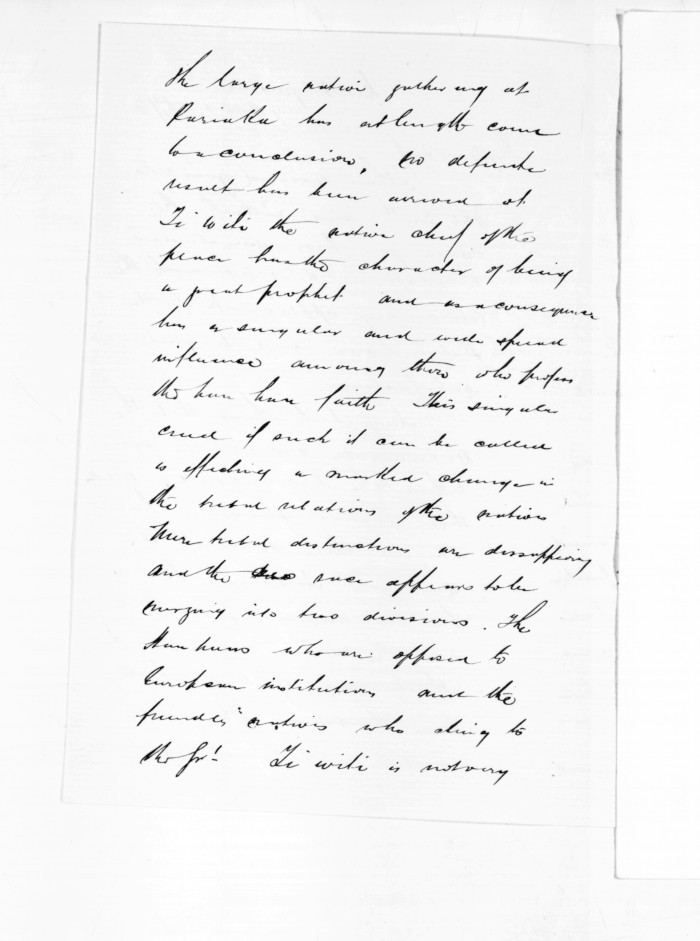 the large native gathering at
Pariaka has at length come
to a conclusion, no definite
result has been arrived at
Ti Witi the native chief of the
place has the character of being
a great prophet and as a consequence
has a singular and wide spread
influence among those who profess
the hau hau faith This singular
creed if such it can be called
is effecting a marked change in
the tribal relations of the natives
Mere tribal distinctions are dissappearing
and the race appears to be
merging into two divisions. The
Hau haus who are opposed to
European institutions and the
friendly natives who cling to
the Govt Ti witi is not very